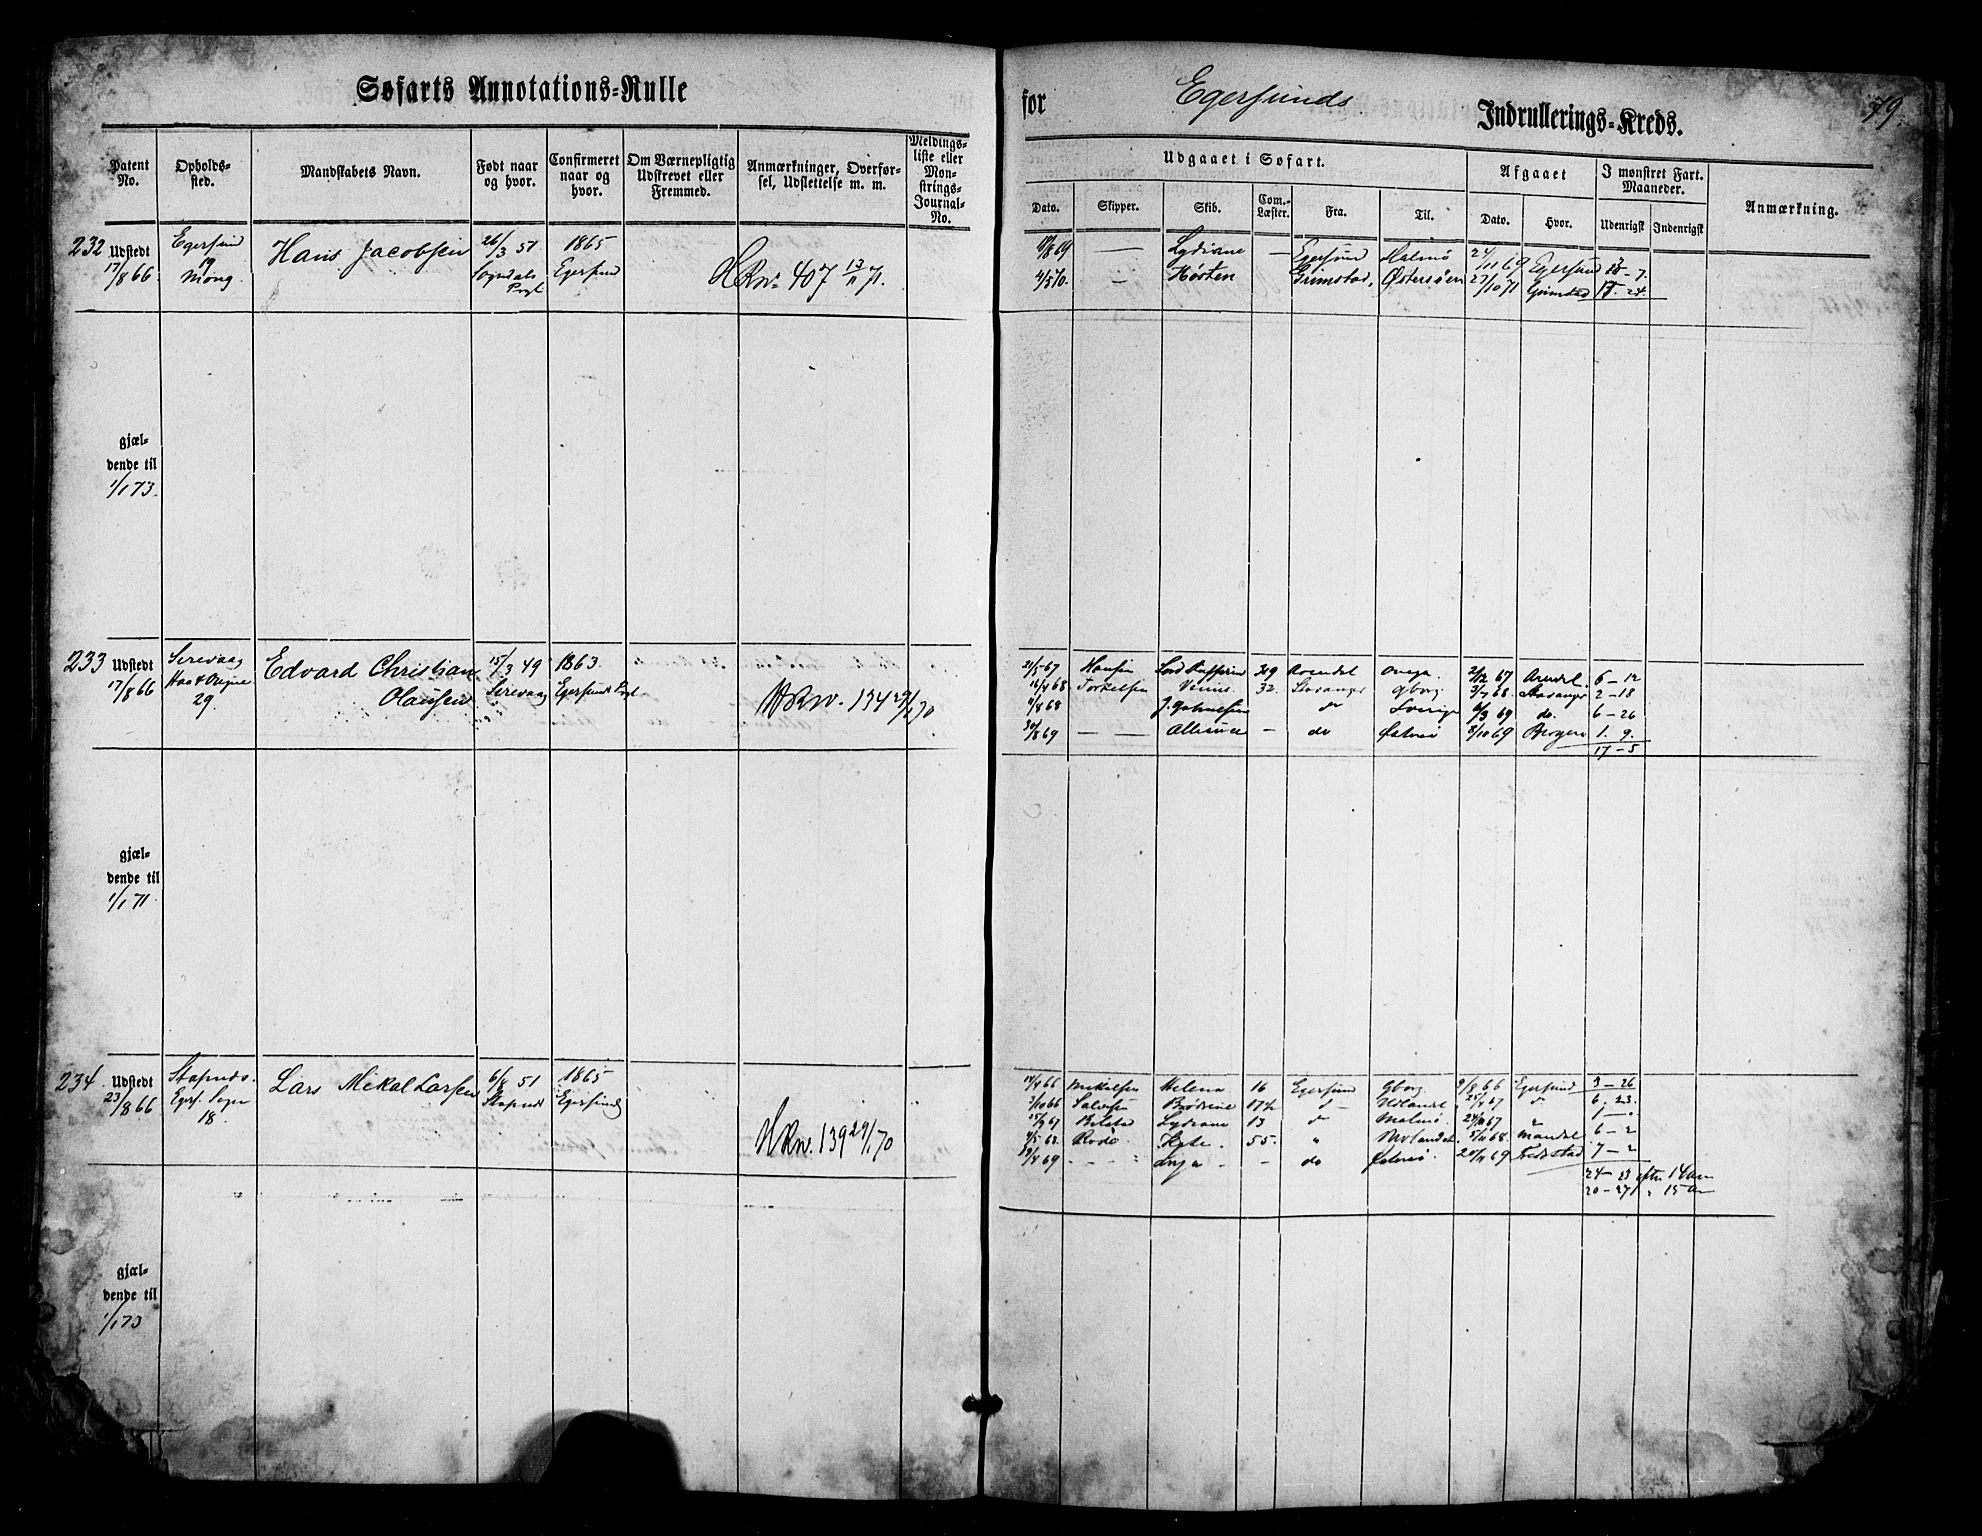 Søfarts Annotations-Rulle
for Egersunds Indrullerings-Kreds.
79.
Patent No.
Opholds-sted.
Mandskabets Navn.
Født naar og hvor.
Confirmeret naar og hvor.
Om Værnepligtig Udskrevet eller Fremmed.
Anmærkninger, Overførsel, Udslettelse m. m.
Meldingsliste eller Monstrings-Journal-No.
Udgaaet i Søfart.
Afgaaet
I mønstret Fart. Maaneder.
Anmærkning.
Dato. Skipper. Skib. Com.-Læster. Fra. Til. Dato. Hvor. Udenrigst Indenrigst
232 Udstedt 17/8 66.
Egersund
19
Mong.
Hans Jacobsen
26/3 51
Sogndals Prgl
1865
Egersund
HRno 407 13/11 71.
— Lydiane — Egersund Malmø 24/11 69 Egersund
4/5 70. — Høsten Grimstad, Østersøen 27/10 71 Grimstad 24.
gjæl-
dende til
1/1 73.
233 Udstedt 17/8 66
Sirevaag
29.
Edvard Christian
Olausen
15/3 49
Sirevaag
1863.
Egersunds Prgl
HRno. 134 29/1 70
21/5 67 Hansen 319 Arendal 2/12 67 Arendal. 6 — 12
11/4 68 Torkelsen Venus 32. Stavanger Gborg. 3/7 68. Stavanger 2 — 18
11/8 68 do Sverige 6/3 69 do. 6 — 26
30/8 69 — — — do Østersø 8/10 69 Bergen 1. 9.
17 — 5
gjæl-
dende til
1/1 71.
234. Udstedt 23/8 66
Stapnes.
Egers. Sogn
18.
Lars Mikal Larsen
6/8 51
Stapnes
1865
Egersund
HRno. 139 29/1 70
17/4 66 Mikalsen Helena 16 Egersund Gborg. 9/8 66 Egersund 3 — 26
3/10 66 Salvesen Brødrene 17½ Udlandet 25/4 67 6. 23.
25/9 67 Lydiane 13 do Malmø 24/10 67 " 1 — "
4/5 68. Rode. 55. " 5/11 68. Mandal 6 — 2
29/4 69 — do Østersø 20/11 69 Fredrstad 7 — 2
24 — 23 efter 14 Aar
20 — 27 " 15 Aar
gjæl-
dende til
1/1 73